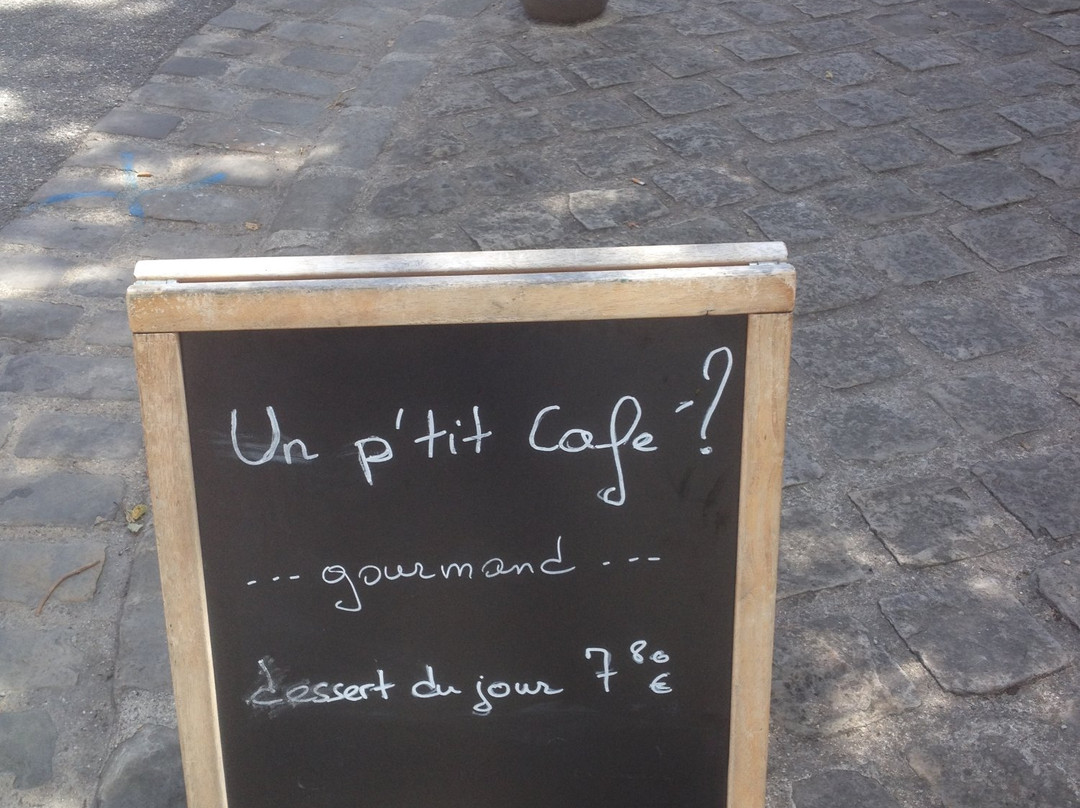 Un p'tit Café ?
--- gourmand ---
dessert du jour 7 80 €